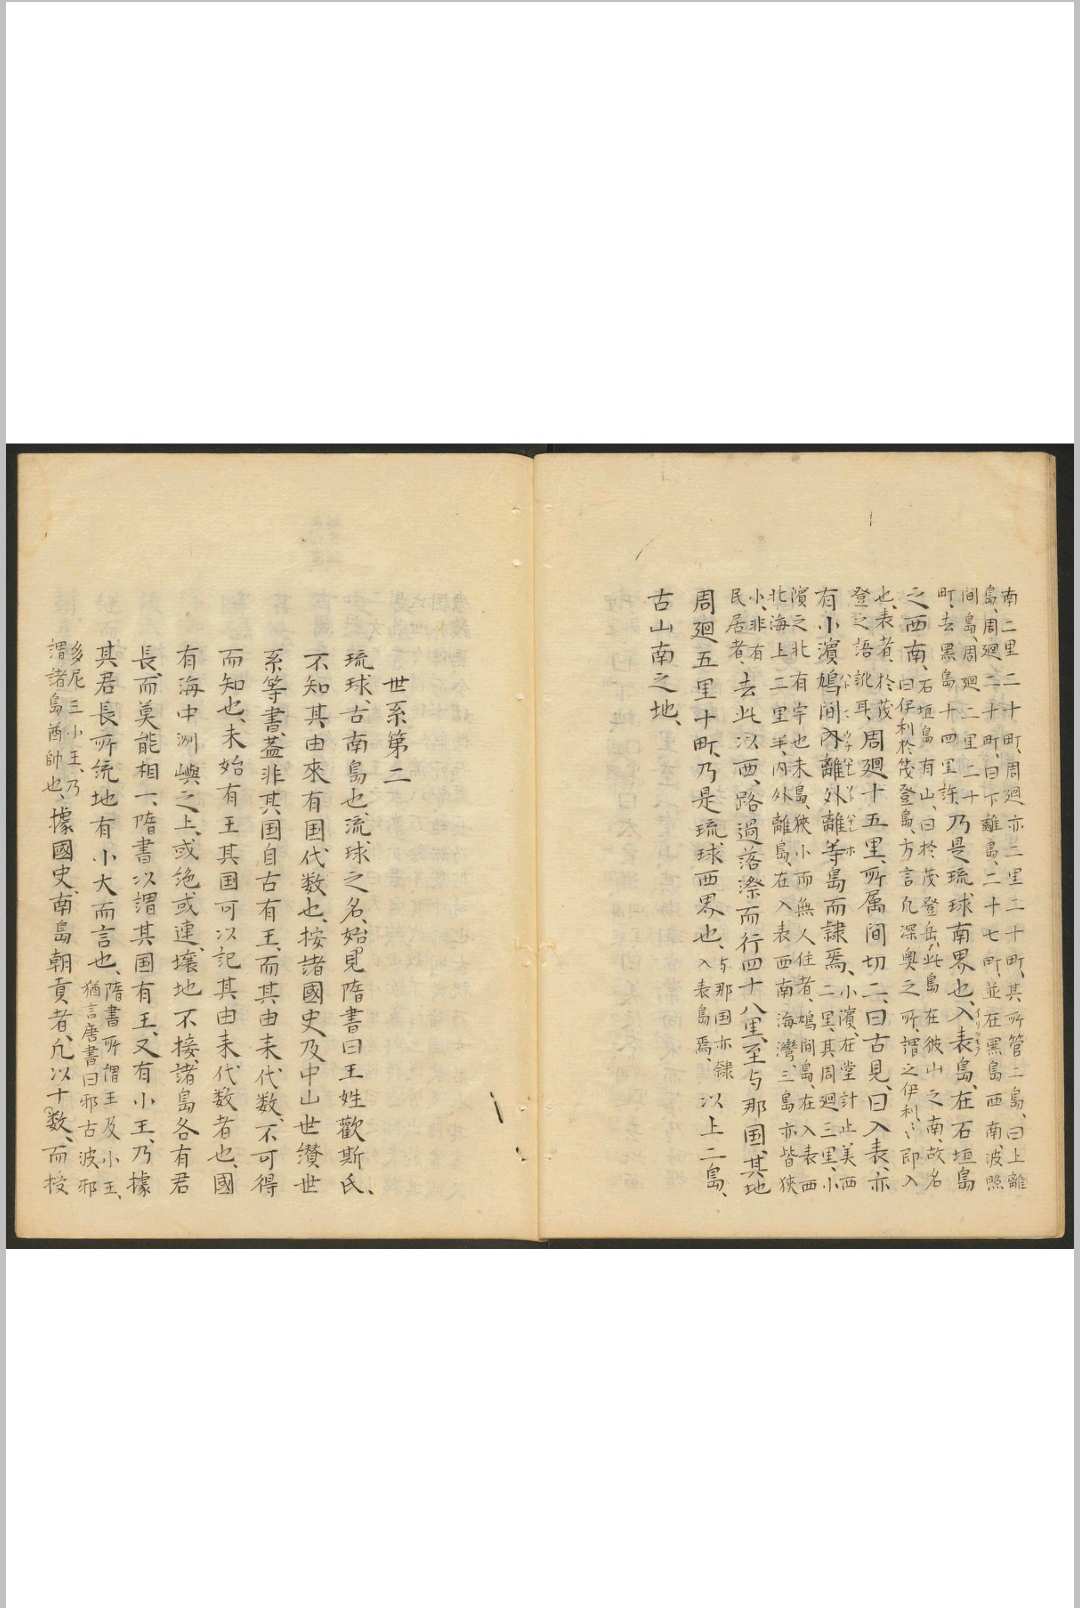 南二里二十町、周廻亦二里二十町、其所管二島、曰上離
島、周廻二十町、曰下離島、二十七町、並在黒島西南、波照
間島、周廻二里二十
町、去黒島十四里許、乃是琉球南界也、入表島、在石垣島
之西南、石垣島有山、曰於茂登岳、此島在彼山之南、故名
曰伊利於茂登島、方言凡深奥之所、謂之伊利、即入
也、表者、於茂
登之語訛耳、周廻十五里、所属間切二、曰古見、曰入表、亦
有小濱鳩間内離外離等島而隷焉、小濱、在堂計止美西
二里、其周廻三里、小
濱之北有宇也末島、狹小而無人住者、鳩間島、在入表西
北海上二里半、内外離島、在入表西南海灣、三島亦皆狹
小、非有
民居者、去此以西、路過落漈而行四十八里、至与那国、其地
周廻五里十町、乃是琉球西界也、与那国亦隷
入表島焉、以上二島、
古山南之地、
世系第二
琉球、古南島也、流球之名、始見隋書曰王姓歡斯氏、
不知其由來有国代数也、按諸國史及中山世纉世
系等書、蓋非其国自古有王、而其由来代数、不可得
而知也、未始有王其国可以記其由来代数者也、國
有海中洲嶼之上、或絶或連、壤地不接、諸島各有君
長、而莫能相一、隋書以謂其国有王、又有小王、乃據
其君長所統地有小大而言也、隋書所謂王及小王、
猶言唐書曰邪古波邪
多尼三小王、乃
謂諸島酋帥也、據國史、南島朝貢者、凡以十数、而授